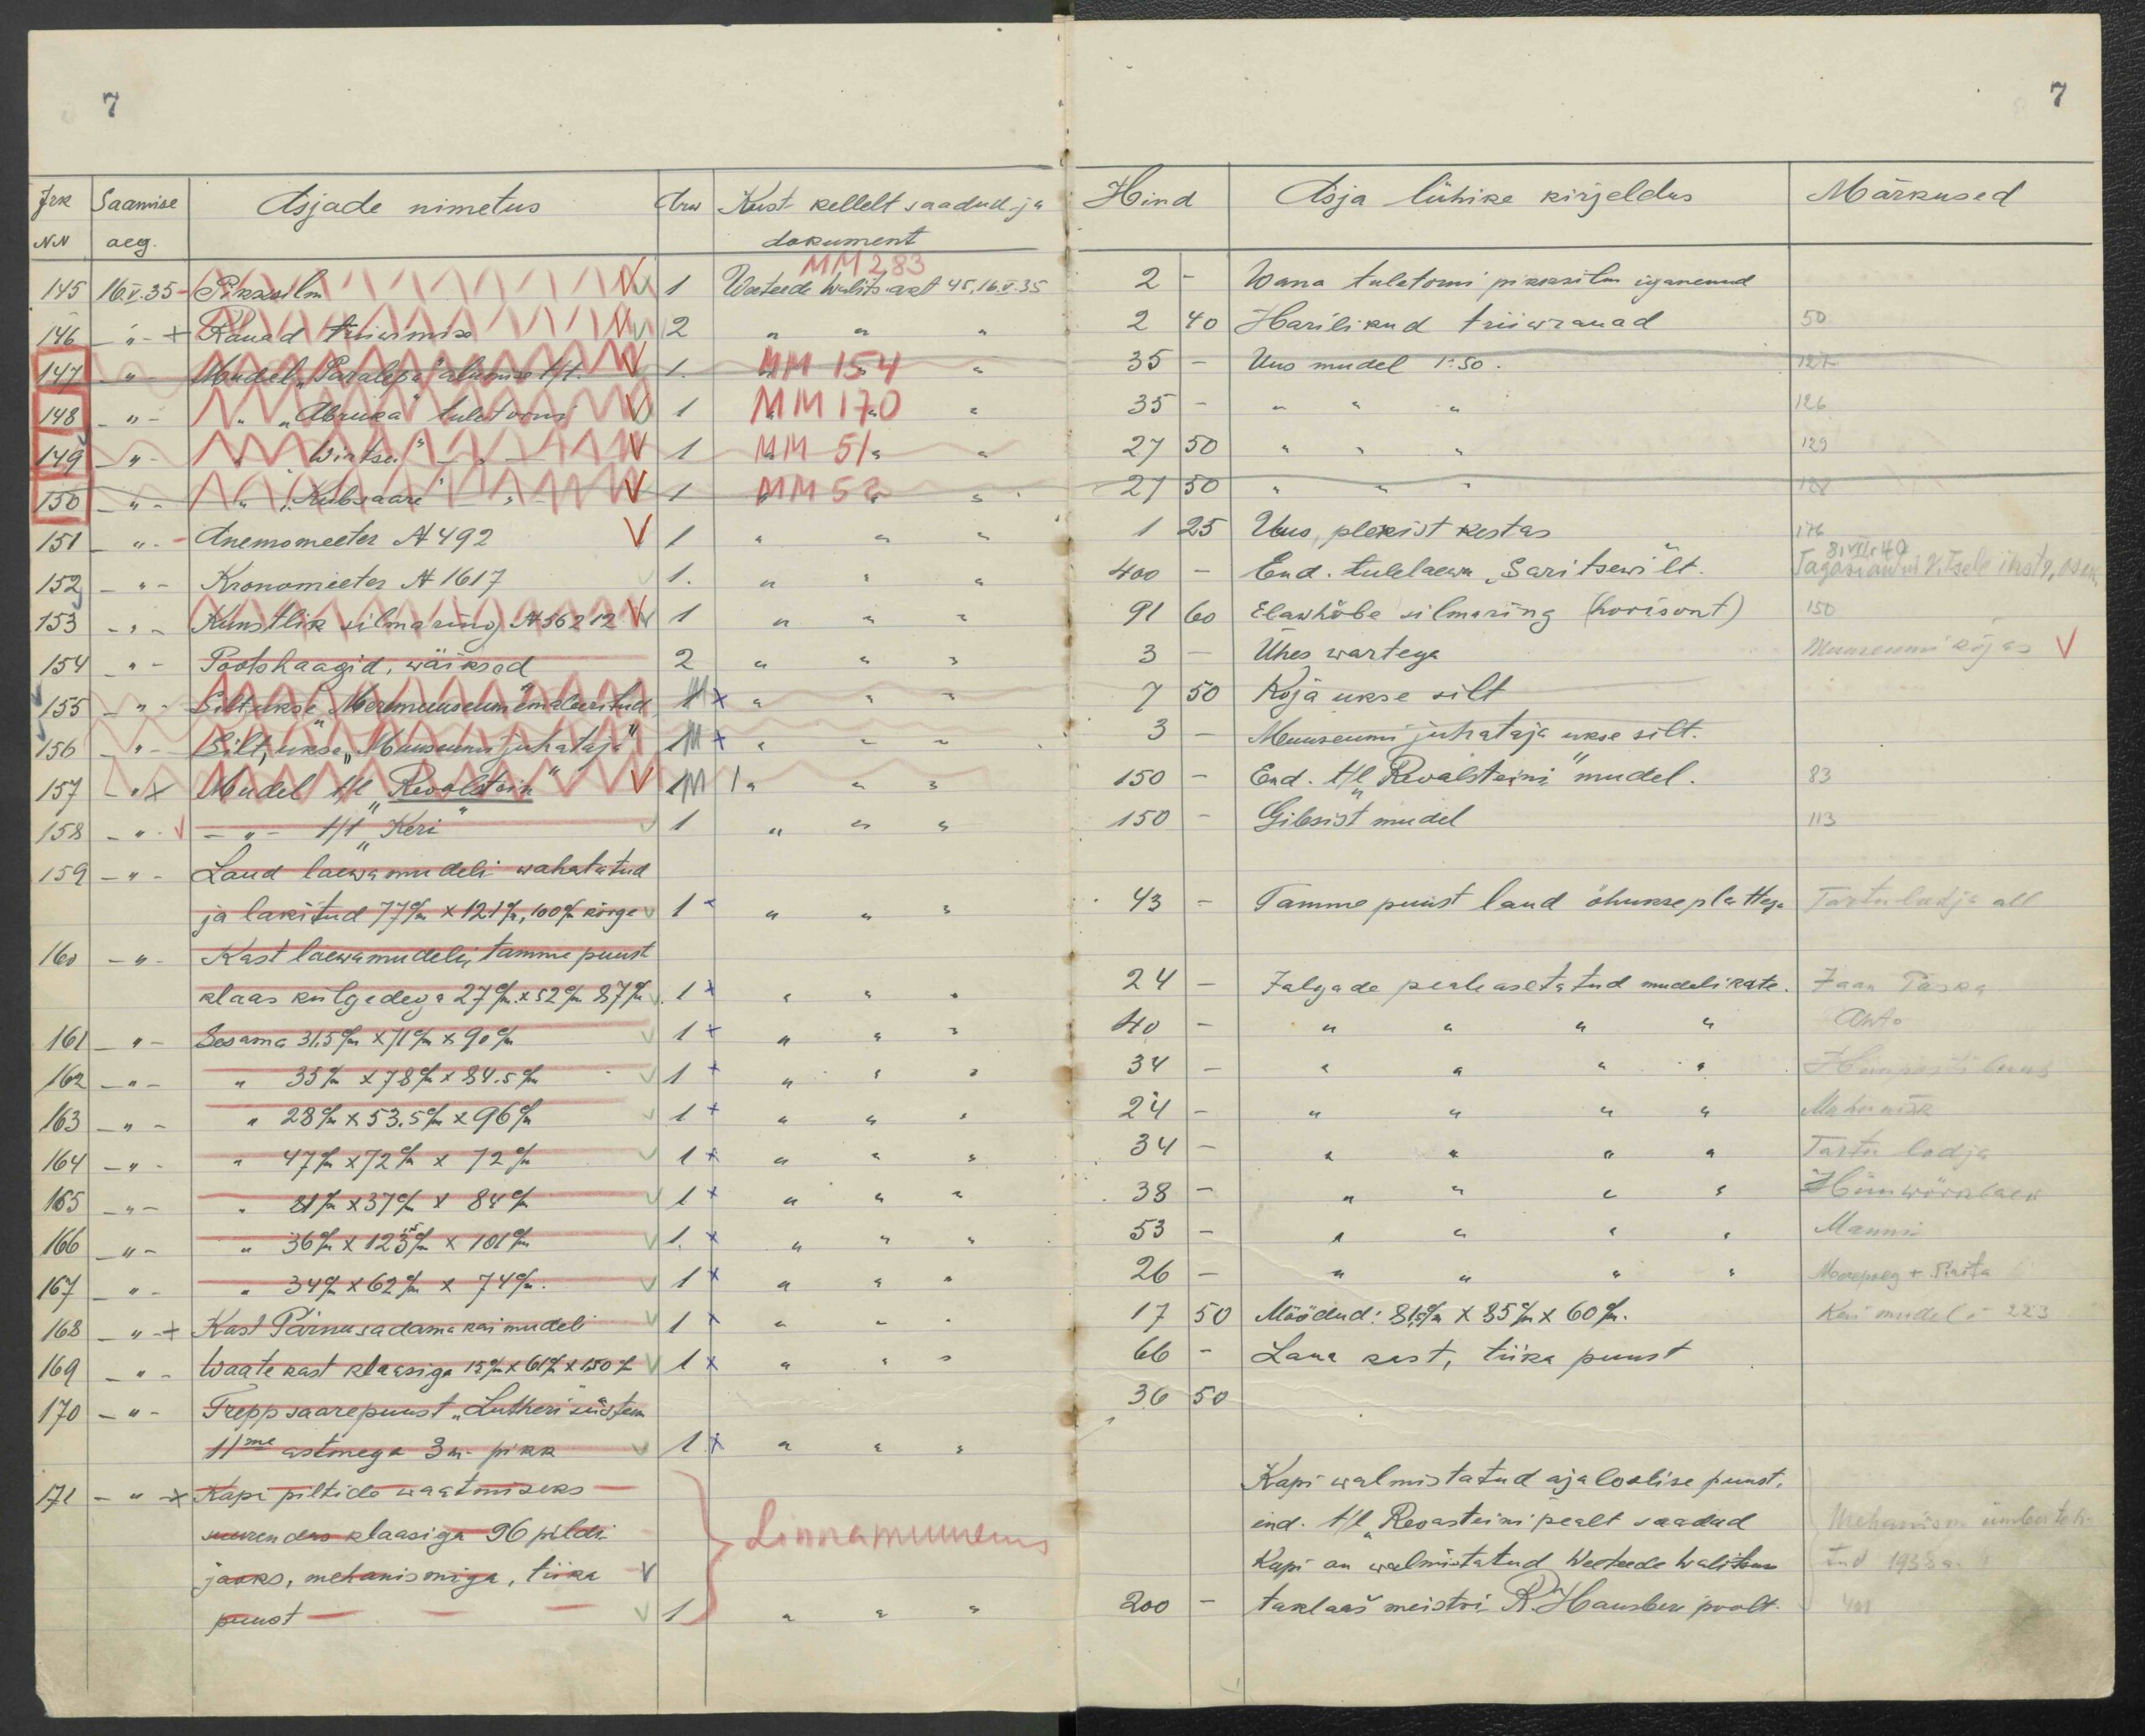 7
7
Jrk NN Saamise aeg. Asjade nimetus Arw Kust kellelt saadud ja dokument Hind Asja lühike kirjeldus Märkused
MM 283
145 16.V.35 - Pikksilm 1 Weeteede Walits. akt 45, 16.V.35 2 - Wana tuletorni pikksilm iganenud
146 - " - + Rauad triiwimise 2 " " " 2 40 Harilikud triiwrauad 50
147 - " - Mudel "Paralepa" alumise t/t. 1. MM 154 " " 35 - Uus mudel 1:50. 127
148 - " - " "Abruka" tuletorni 1 MM 170 " " 35 - " " " 126
149 - " - " "Wirtsu" - " - 1 MM 51 " " 27 50 " " " 129
150 - " - " "Kübsaare" - " - 1 MM 52 " " 27 50 " " " 128
151 - " - - Anemomeeter № 492 V 1 " " " 1 25 Uus, plekist kestas 176
8.VII.40
152 - " - Kronomeeter № 1617 1. " " " 400 - End. tulelaewa "Saritsewi" lt. Tagasi antud V.T.
153 - " - Kunstlik silmaring № 56212 1 " " " 91 60 Elawhõbe silmaring (horisont) 150
154 - " - Pootshaagid, wäiksed 2 " " " 3 - Ühes wartega Muuseumi kojas V
155 - " - Silt, ukse "Meremuuseum" emaleeritud 1 x " " " 7 50 Koja ukse silt
156 - " - Silt, ukse "Muuseumi juhataja" 1 + " " " 3 - Muuseumi juhataja ukse silt.
157 - " x Mudel t/l "Rewalstein" 1 " " " 150 - End. t/l "Rewalsteini" mudel. 83
158 - " - V - " - t/t "Keri" 1 " " " 150 - Gibsist mudel 113
159 - " - Laud laewamudeli wahatatud
ja lakitud 77 c/m x 121 c/m, 100 c/m kõrge 1 " " " 43 - Tamme puust laud õhukse plattega Tartu lodja all
160 - " - Kast laewamudeli, tamme puust
klaas külgedega 27 c/m x 52 c/m 87 c/m 1 x " " " 24 - Jalgade peale asetatud mudeli kate. Jaan Paska
161 - " - Sesama 31.5 c/m x 71 c/m x 90 c/m 1 + " " " 40 - " " " " Ahto
162 - " - " 35 c/m x 78 c/m x 84.5 c/m 1 + " " " 34 - " " " "
163 - " - " 28 c/m x 53.5 c/m x 96 c/m 1 + " " " 24 - " " " "
164 - " - " 47 c/m x 72 c/m x 72 c/m 1 x " " " 34 - " " " " Tartu lodja
165 - " - " 81 c/m x 37 c/m x 84 c/m 1 x " " " 38 - " " " "
166 - " - " 36 c/m x 123 c/m x 101 c/m 1. x " " " 53 - " " " "
167 - " - " 34 c/m x 62 c/m x 74 c/m. 1 x " " " 26 - " " " "
168 - " - + Kast Pärnu sadama kai mudeli 1 x " " " 17 50 Mõõdud: 81.5 c/m x 85 c/m x 60 c/m. Kai mudel 223
169 - " - Waate kast klaasiga 15 c/m x 61 c/m x 150 c/m 1 x " " " 66 - Laua kast, tiika puust
170 - " - Trepp saarepuust "Lutheri" süsteem 36 50
11me astmega 3 m. pikk 1 x " " "
171 - " - x Kapi piltide waatmiseks Kapi walmistatud ajaloolise puust,
suurendus klaasiga 96 pildi Linnamuuseum end. t/l "Rewasteini pealt saadud Mehanism ümber teh-
jaoks, mehanismiga, tiika V Kapi on walmistatud Weeteede Walitsuse tud 1938 a.
puust 1 " " " 200 - taklaaš meistri R. Hausberi poolt.